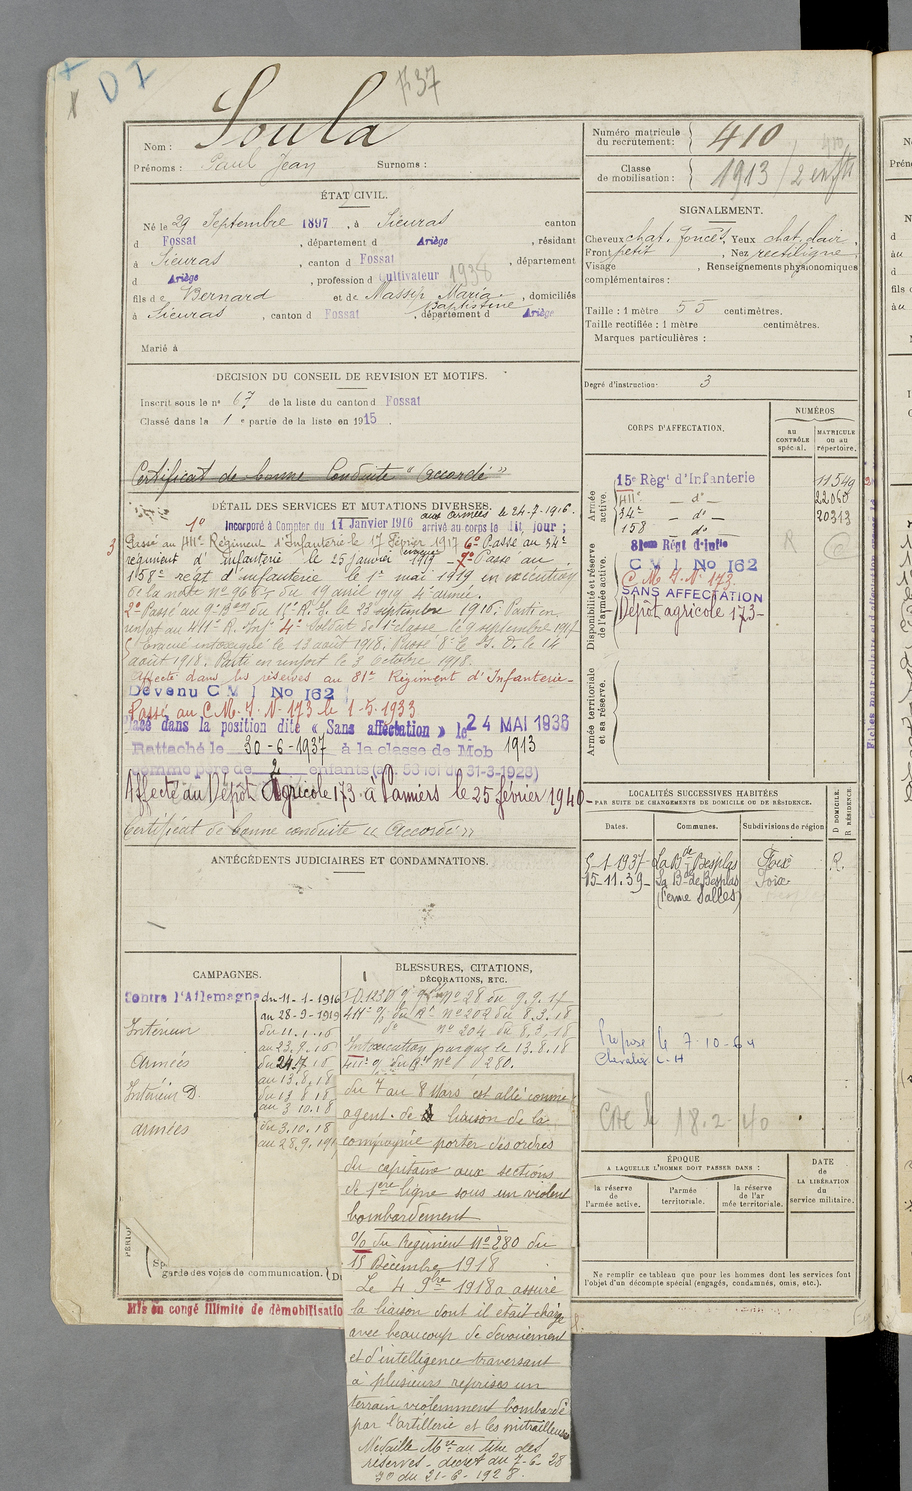 D I
p 37
Nom : Soula
Prénoms : Paul Jean Surnoms :
Numéro matricule du recrutement : 410
Classe de mobilisation : 1913 / 2 enfts
ÉTAT CIVIL.
Né le 29 Septembre 1897, à Sieuras canton
d Fossat, département d Ariège, résidant
à Sieuras, canton d Fossat, département
d Ariège, profession d cultivateur 1938
fils de Bernard et de Massip Maria Baptistine, domiciliés
à Sieuras, canton d Fossat, département d Ariège
Marié à
SIGNALEMENT.
Cheveux chat. foncés, Yeux chat. clair,
Front petit, Nez rectiligne,
Visage, Renseignements physionomiques
complémentaires :
Taille : 1 mètre 55 centimètres.
Taille rectifiée : 1 mètre centimètres.
Marques particulières :
Degré d'instruction : 3
DÉCISION DU CONSEIL DE REVISION ET MOTIFS.
Inscrit sous le n° 67 de la liste du canton d Fossat
Classé dans la 1e partie de la liste en 1915.
Certificat de bonne Conduite "Accordé"
DÉTAIL DES SERVICES ET MUTATIONS DIVERSES.
aux Armées le 24-7-1916.
1° Incorporé à Compter du 11 Janvier 1916 arrivé au corps le dit jour ;
3 Passé au 411e Régiment d'Infanterie le 17 Février 1917 6° Passé au 34e
régiment d'infanterie le 25 janvier 1919 - 7° Passé au
158e regt d'infanterie le 1er mai 1919 en exécution
de la note n° 966 du 19 avril 1919 4e armée.
2° Passé au 9e Bon du 11e R. I. le 23 septembre 1916. Parti en
renfort au 411e R. Inf 4° Soldat de 1e classe le 9 septembre 1917
5 Evacué intoxiqué le 13 août 1918. Passé 8e le D. le 14
août 1918. Parti en renfort le 3 Octobre 1918.
Affecté dans les réserves au 81e Régiment d'Infanterie-
Devenu C M I No 162
Passé au C.M.I. N° 173 le 1-5-1933
Placé dans la position dite « Sans affectation » le 24 MAI 1936
Rattaché le 30-6-1937 à la classe de Mob 1913
comme père de 2 enfants (art. 58 loi du 31-3-1928)
Affecté au Dépôt Agricole 173 à Pamiers le 25 février 1940-
Certificat de bonne conduite « Accordé »
CORPS D'AFFECTATION.
NUMÉROS
AU CONTRÔLE spécial.
MATRICULE ou au répertoire.
Armée active.
15e Régt d'Infanterie 11549
411e — d° — 22060
34e — d° — 20313
158 — d°
Disponibilité et réserve de l'armée active.
81eme Régt d'Infie
C M I No 162
C.M.I. N° 173.
SANS AFFECTATION
Dépôt agricole 173-
Armée territoriale et sa réserve.
LOCALITÉS SUCCESSIVES HABITÉES
PAR SUITE DE CHANGEMENTS DE DOMICILE OU DE RÉSIDENCE.
Dates. Communes. Subdivisions de région
D DOMICILE.
R RÉSIDENCE.
5-1-1937- La Bde de Besplas Foix R.
15-11.39- La Bde de Besplas Foix
(ferme Salles)
Proposé le 7-10-64
Chevalier L-H
18.2-40
ANTÉCÉDENTS JUDICIAIRES ET CONDAMNATIONS.
CAMPAGNES.
Contre l'Allemagne du 11-1-1916
au 28-9-1919
Intérieur du 11.1.16
au 23.7.16
Armées du 24.7.16
au 13.8.18
Intérieur D. du 13 8 18
au 3 10.18
armées du 3.10.18
au 28.9.191
BLESSURES, CITATIONS,
DÉCORATIONS, ETC.
n° 28 du 9.9.17
n° 202 du 8.3.18
d° n° 204 du 8.3.18
Intoxication par gaz le 13.8.18
n° 280.
du 7 au 8 Mars est allé comme
agent de liaison de la
compagnie porter des ordres
du capitaine aux sections
de 1ère ligne sous un violent
bombardement
O/ du Régiment N° 280 du
15 Décembre 1918
Le 4 9bre 1918 a assuré
la liaison dont il était chargé
avec beaucoup de dévouement
et d'intelligence traversant
à plusieurs reprises un
terrain violemment bombardé
par l'artillerie et les mitrailleuses
Médaille Mre au titre des
réserves - décret du 7-6-28
JO du 21-6-1928.
ÉPOQUE
A LAQUELLE L'HOMME DOIT PASSER DANS :
la réserve de l'armée active.
l'armée territoriale.
la réserve de l'armée territoriale.
DATE de LA LIBÉRATION du service militaire.
Ne remplir ce tableau que pour les hommes dont les services font
l'objet d'un décompte spécial (engagés, condamnés, omis, etc.).
garde des voies de communication.
Mis en congé illimité de démobilisatio